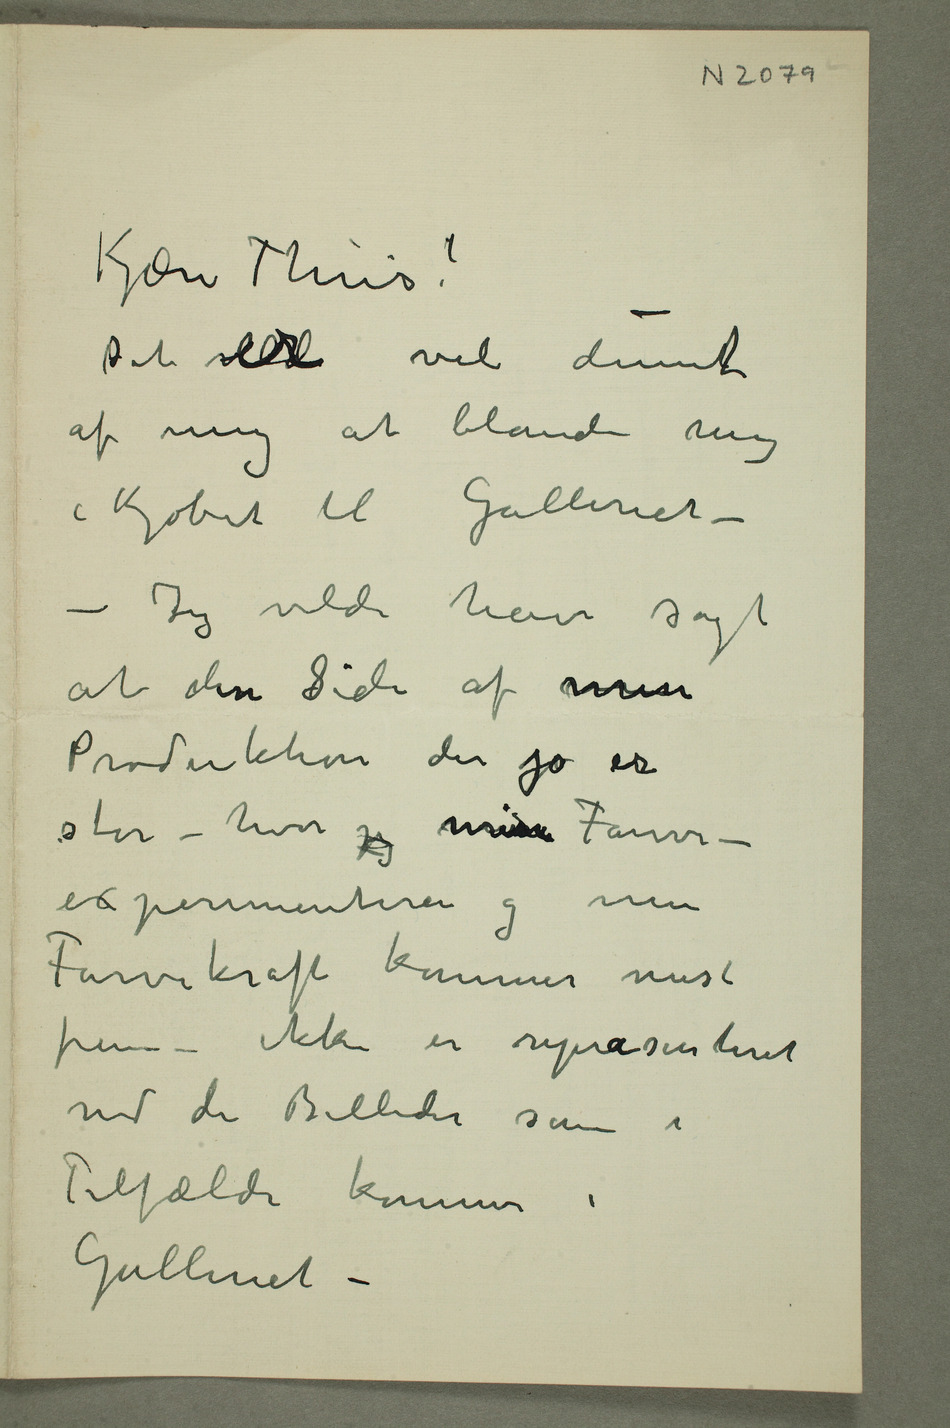 N 2079
Kjære Thiis!
Det vel dumt
af mig at blande mig
i Kjøbet til Galleriet –
– Jeg vilde have sagt
at den Side af min
Produktion der jo er
stor – hvor jeg mine Farve –
experimenterer og min
Farvekraft kommer mest
frem – ikke er repræsenteret
ved de Billeder som i
Tilfælde kommer i
Galleriet –